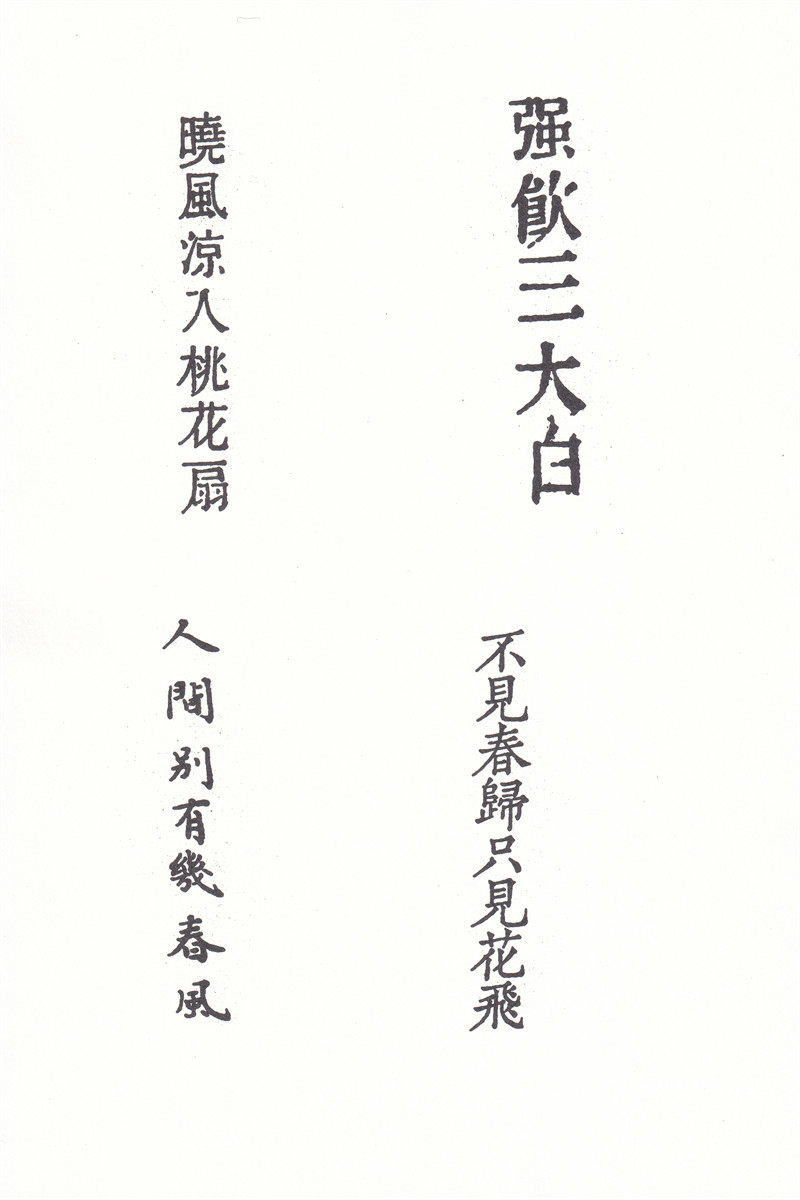 强飲三大白
不見春歸只見花飛
曉風涼入桃花扇
人間別有幾春風